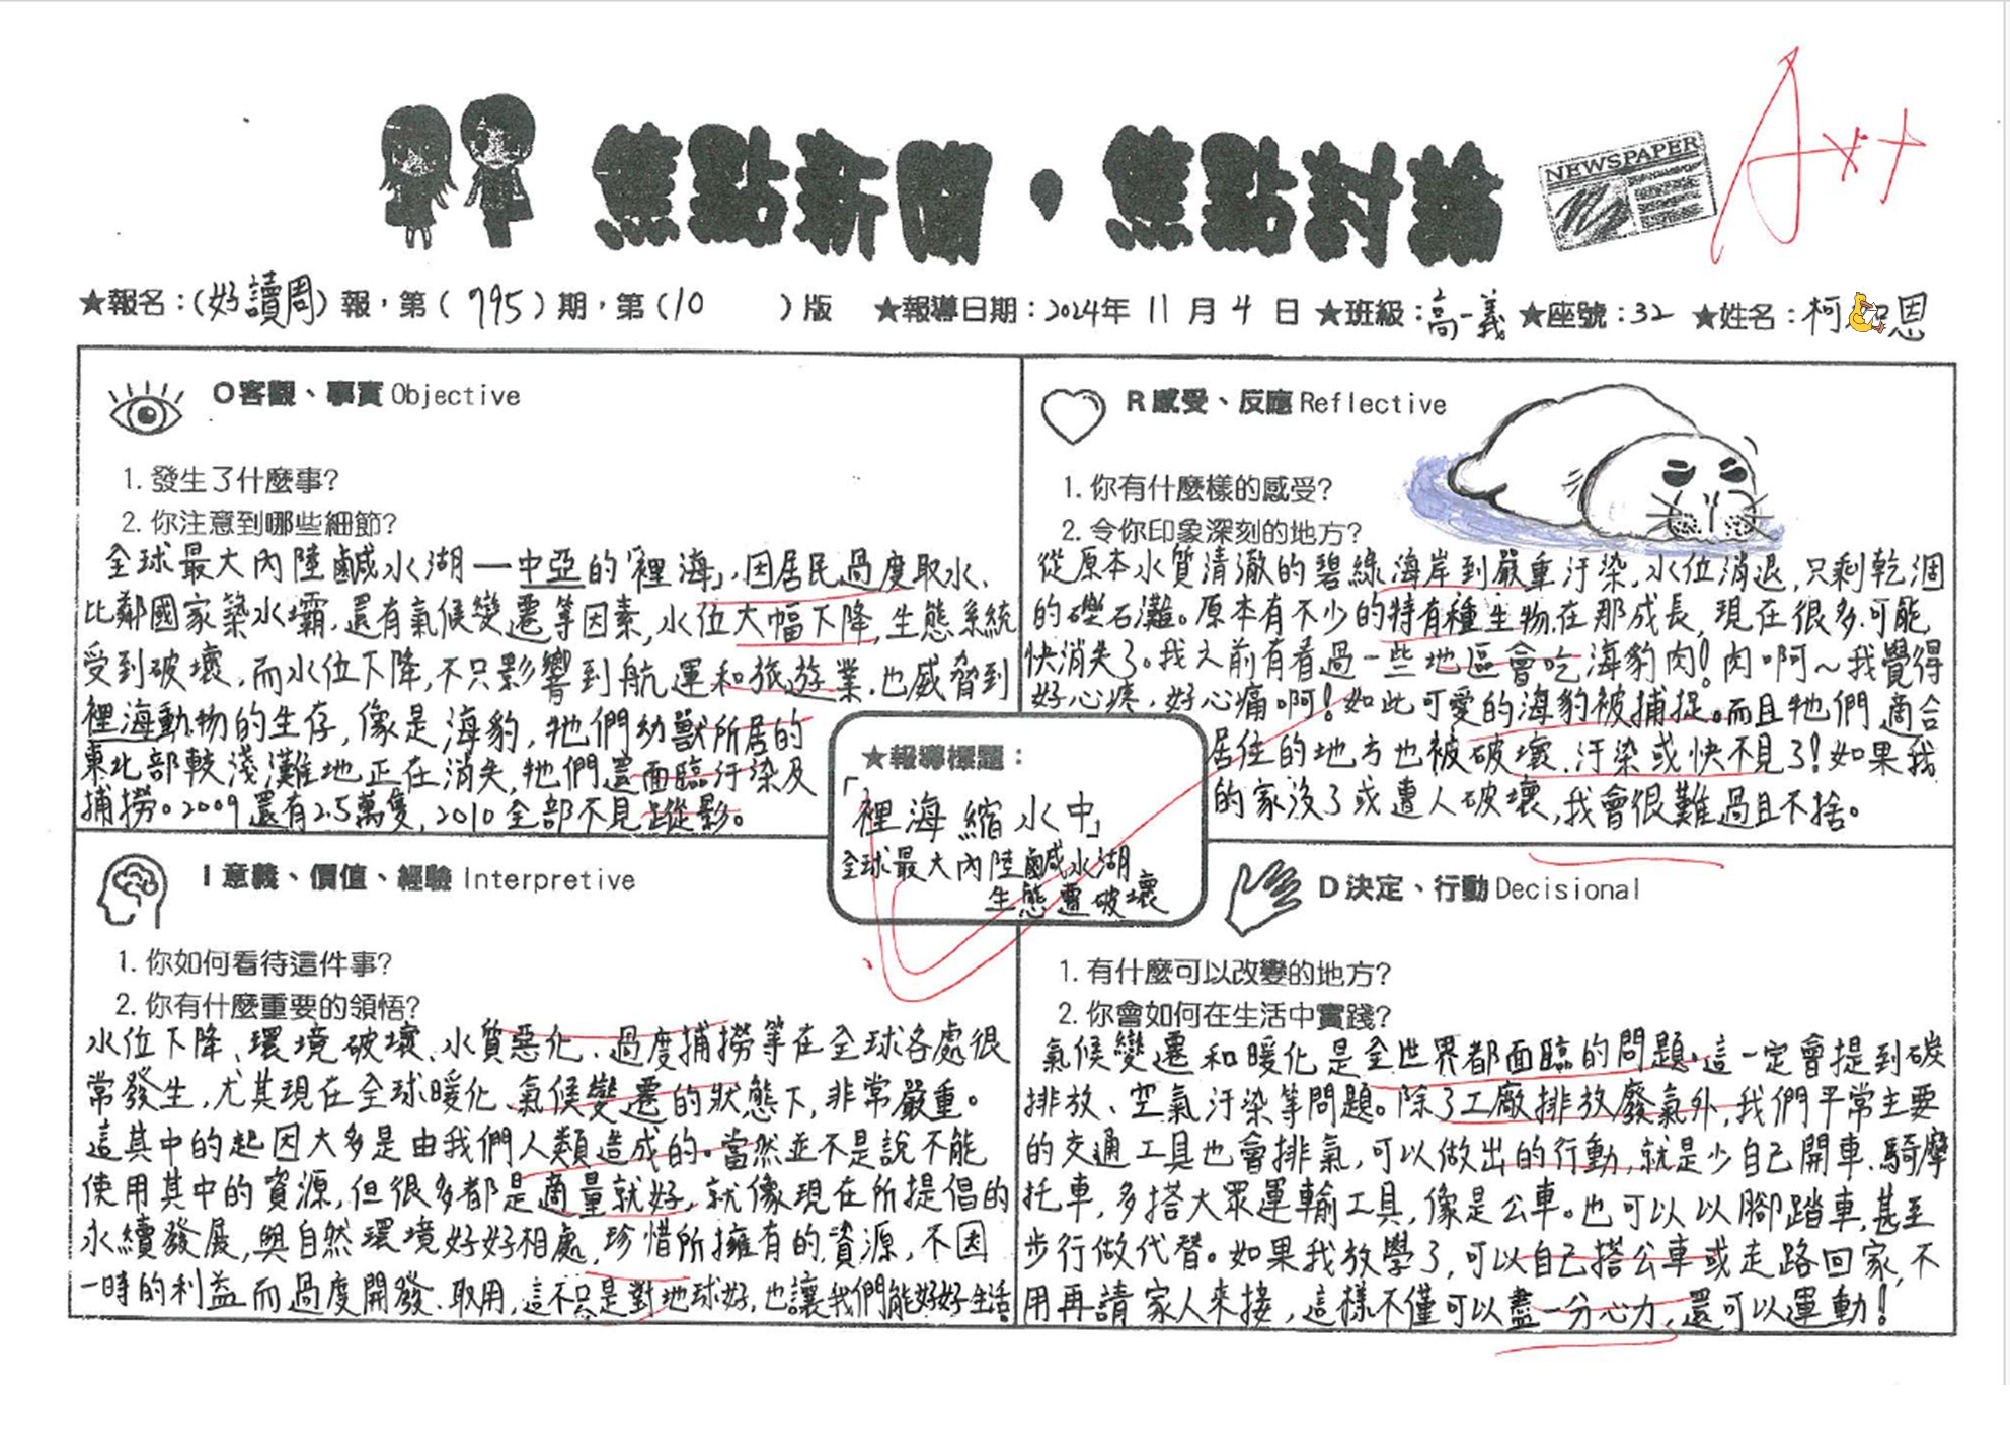 焦點新聞・焦點討論
NEWSPAPER
A++
★報名：(好讀周)報，第(795)期，第(10　)版 ★報導日期：2024年 11 月 4 日 ★班級：高一義 ★座號：32 ★姓名：柯 恩
O 客觀、事實 Objective
1. 發生了什麼事?
2. 你注意到哪些細節?
全球最大內陸鹹水湖—中亞的「裡海」,因居民過度取水、
比鄰國家築水壩,還有氣候變遷等因素,水位大幅下降,生態系統
受到破壞,而水位下降,不只影響到航運和旅遊業,也威脅到
裡海動物的生存,像是海豹,牠們幼獸所居的
東北部較淺灘地正在消失,牠們還面臨汙染及
捕撈。2009還有2.5萬隻,2010全部不見蹤影。
R 感受、反應 Reflective
1. 你有什麼樣的感受?
2. 令你印象深刻的地方?
從原本水質清澈的碧綠海岸到嚴重汙染,水位消退,只剩乾涸
的礫石灘。原本有不少的特有種生物在那成長,現在很多可能
快消失了。我之前有看過一些地區會吃海豹肉!肉啊~我覺得
好心疼,好心痛啊!如此可愛的海豹被捕捉。而且牠們適合
居住的地方也被破壞、汙染或快不見了!如果我
的家沒了或遭人破壞,我會很難過且不捨。
★報導標題：
「裡海縮水中」
全球最大內陸鹹水湖
生態遭破壞
I 意義、價值、經驗 Interpretive
1. 你如何看待這件事?
2. 你有什麼重要的領悟?
水位下降、環境破壞、水質惡化、過度捕撈等在全球各處很
常發生,尤其現在全球暖化、氣候變遷的狀態下,非常嚴重。
這其中的起因大多是由我們人類造成的。當然並不是說不能
使用其中的資源,但很多都是適量就好,就像現在所提倡的
永續發展,與自然環境好好相處,珍惜所擁有的資源,不因
一時的利益而過度開發、取用,這不只是對地球好,也讓我們能好好生活。
D 決定、行動 Decisional
1. 有什麼可以改變的地方?
2. 你會如何在生活中實踐?
氣候變遷和暖化是全世界都面臨的問題,這一定會提到碳
排放、空氣汙染等問題。除了工廠排放廢氣外,我們平常主要
的交通工具也會排氣,可以做出的行動,就是少自己開車、騎摩
托車,多搭大眾運輸工具,像是公車。也可以以腳踏車,甚至
步行做代替。如果我放學了,可以自己搭公車或走路回家,不
用再請家人來接,這樣不僅可以盡一分心力,還可以運動!